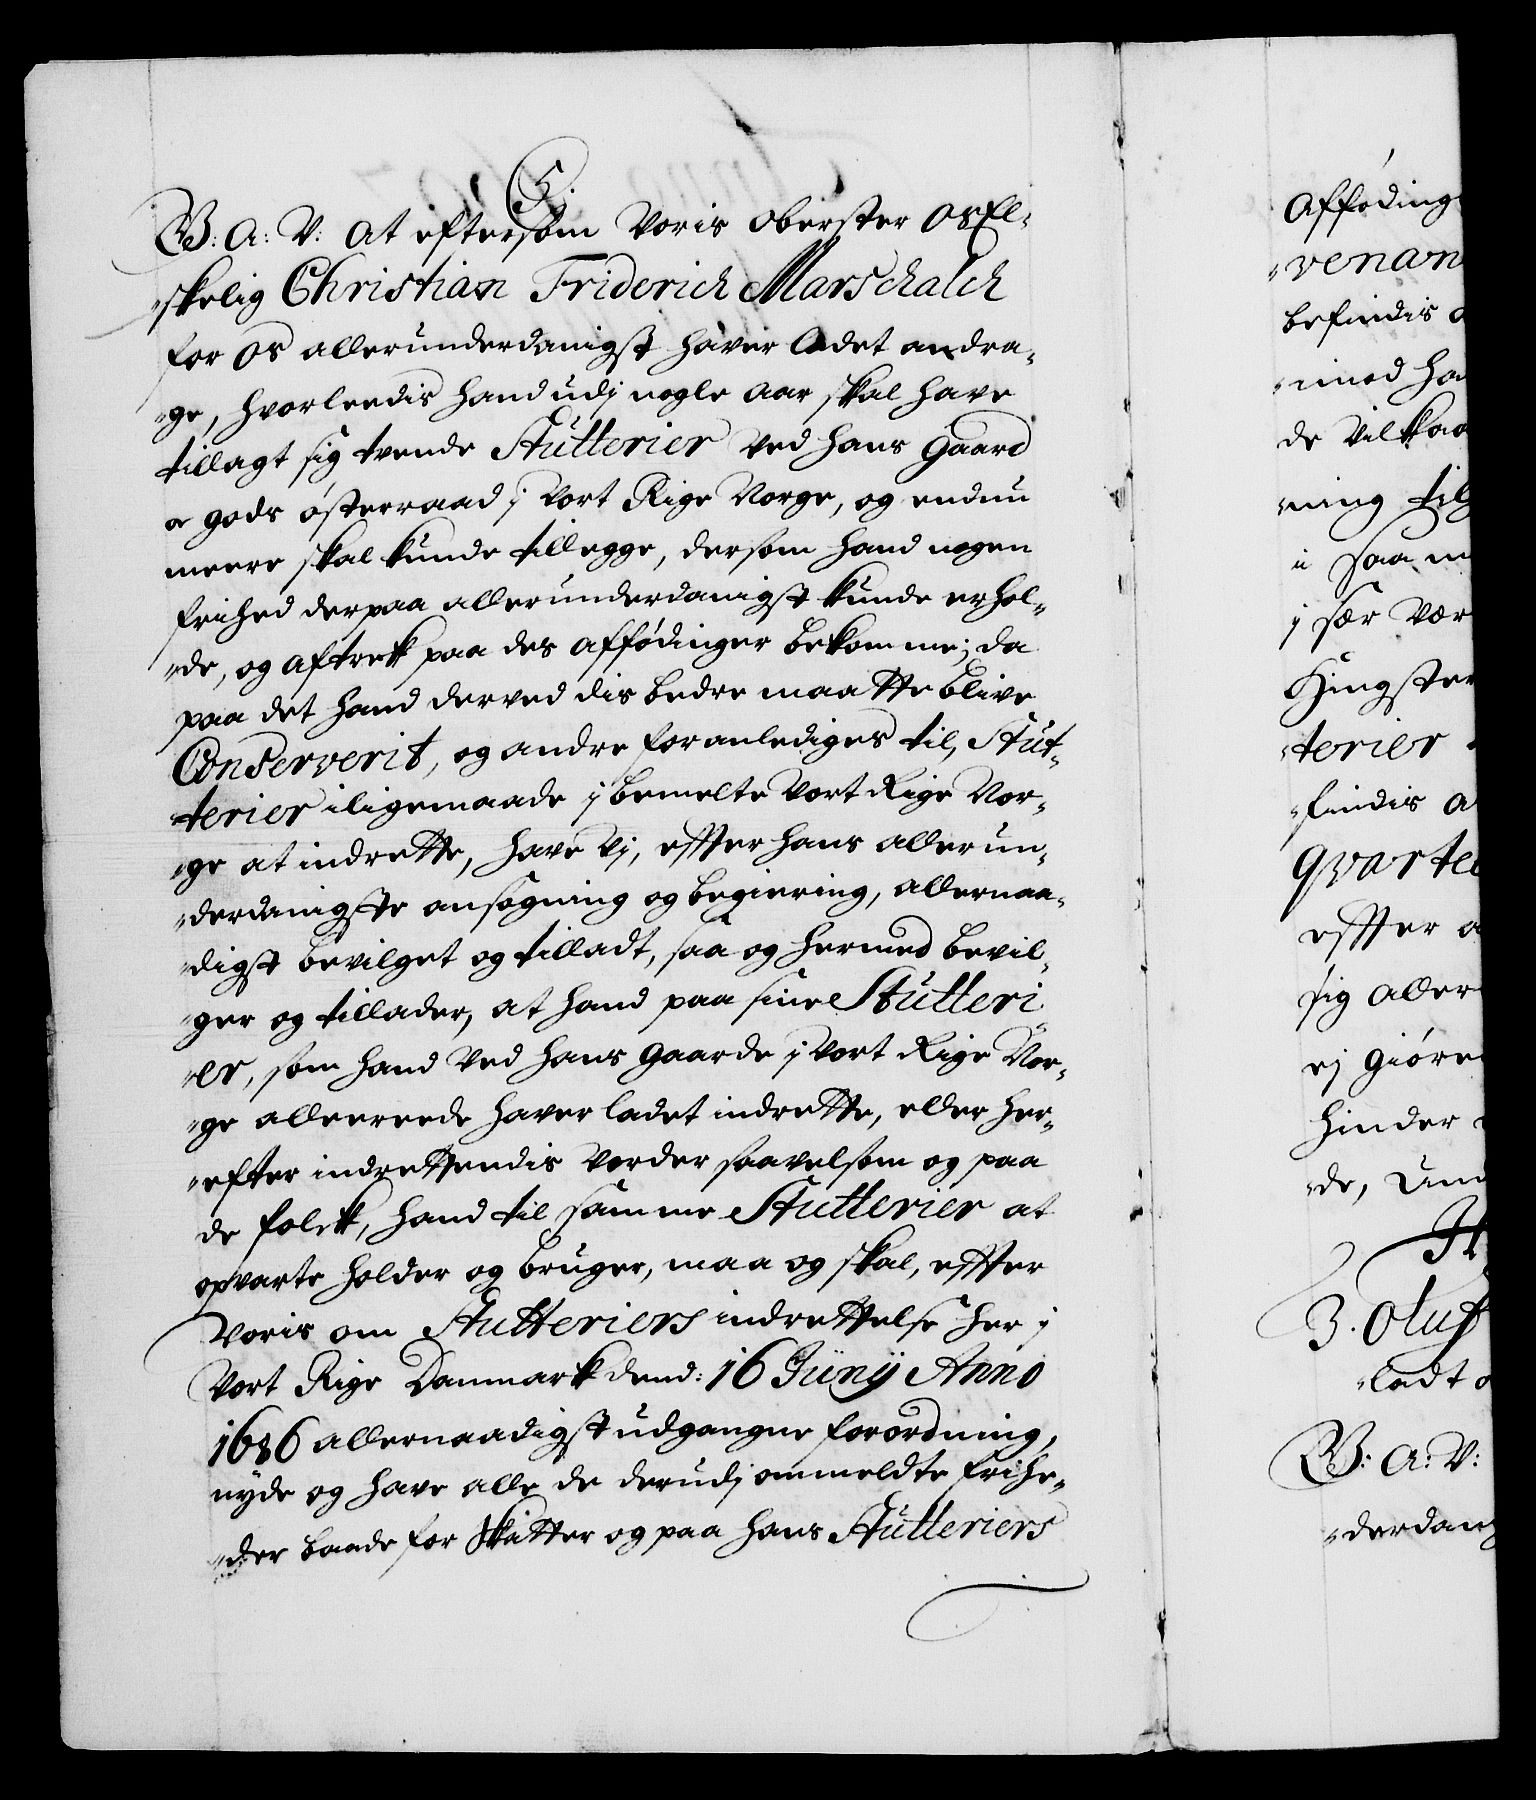 5.
G: A: V: At eftersom Voris Oberster Os El-
skelig Christian Friderich Marschalch
for Os allerunderdanigst haver ladet andra-
ge, hvorleedis hand udj nogle aar skal have
tillagt sig tvende Stutterier ved hans Gaard
oc gods østerraad j Vort Rige Norge, og endnu
meere skal kunde tillegge, dersom hand nogen
frihed derpaa allerunderdanigst kunde erhol-
de, og aftrek paa des afføedinger bekomme; da
paa det hand derved dis bedre maatte blive
Conserverit, og andre foranlediges til, Stut-
terier iligemaade j bemelte Vort Rige Nor-
ge at indrette, have Vj, effter hans allerun-
derdanigste ansøgning og begiering, allernaa-
digst bevilget og tilladt, saa og hermed bevil-
ger og tillader, at hand paa sine Stutteri
er, som hand ved hans Gaarde j Vort Rige Nor-
ge allerreede haver ladet indrette, eller her-
efter indrettendis vorder saavelsom og paa
de folck, hand til samme Stutterier at
opvarte holder og bruger, maa og skal, effter
Voris om Stutteriers indrettelse her j
Vort Rige Danmark dend: 16 Junij Anno
1686 allernaadigst udgangne forordning,
nyde og have alle de derudj ommeldte frihe-
der baade for Skatter og paa hans Stutteriers
Afføding
venan
befindis
imod
de Vilkaa
ning
i saa
j sær vær
Hingster
terier
findis
qvarte
effter
sig aller
ej giøre
hinder
de, Und
3. Oluf
ladt
G: A: V:
derdan